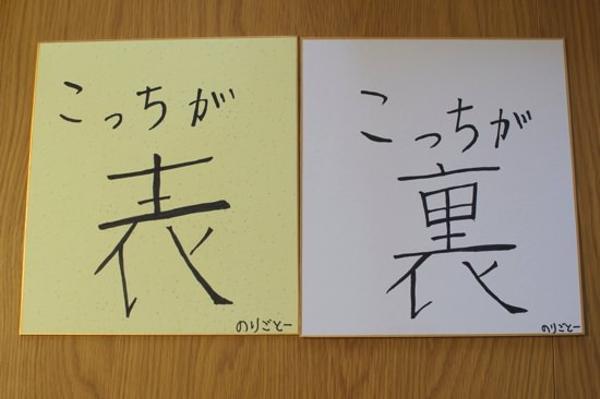 こっちが
表
のりごとー
こっちが
裏
のりごとー